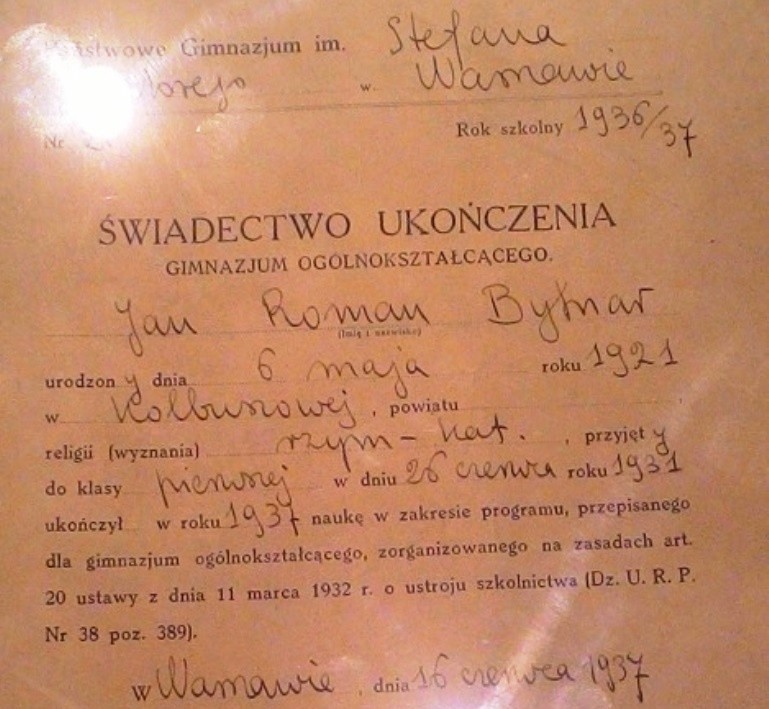 Państwowe Gimnazjum im. Stefana
w Warszawie
Rok szkolny 1936/37
Nr
ŚWIADECTWO UKOŃCZENIA
GIMNAZJUM OGÓLNOKSZTAŁCĄCEGO.
Jan Roman Bytnar
(Imię i nazwisko)
urodzony dnia 6 maja roku 1921
w Kolbuszowej, powiatu
religii (wyznania) rzym-kat., przyjęty
do klasy pierwszej w dniu 26 czerwca roku 1931
ukończył w roku 1937 naukę w zakresie programu, przepisanego
dla gimnazjum ogólnokształcącego, zorganizowanego na zasadach art.
20 ustawy z dnia 11 marca 1932 r. o ustroju szkolnictwa (Dz. U. R. P.
Nr 38 poz. 389).
w Warszawie, dnia 16 czerwca 1937